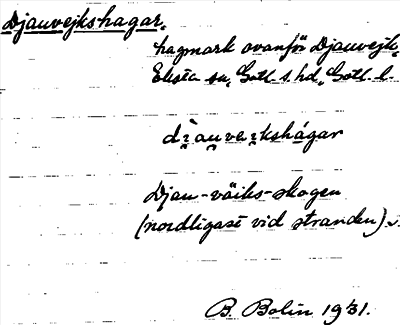 Djauvejkshagar,
hagmark ovanför Djauvejk,
Eksta sn, Gotl. s. hd, Gotl. l.
di̯au̯vei̯kshágar
Djau-väiks-skogen
(nordligast vid stranden).
B. Bolin 1931.